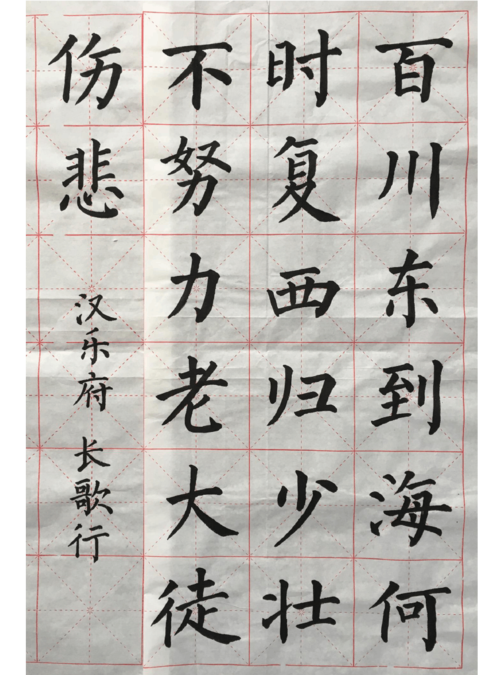 百川东到海何
时复西归少壮
不努力老大徒
伤悲
汉乐府 长歌行